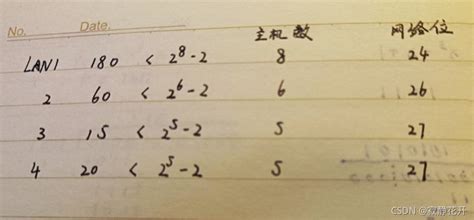 No. Date.
主机数 网络位
LAN1 180 < 2⁸-2 8 24
2 60 < 2⁶-2 6 26
3 15 < 2⁵-2 5 27
4 20 < 2⁵-2 5 27
CSDN @寂静花开